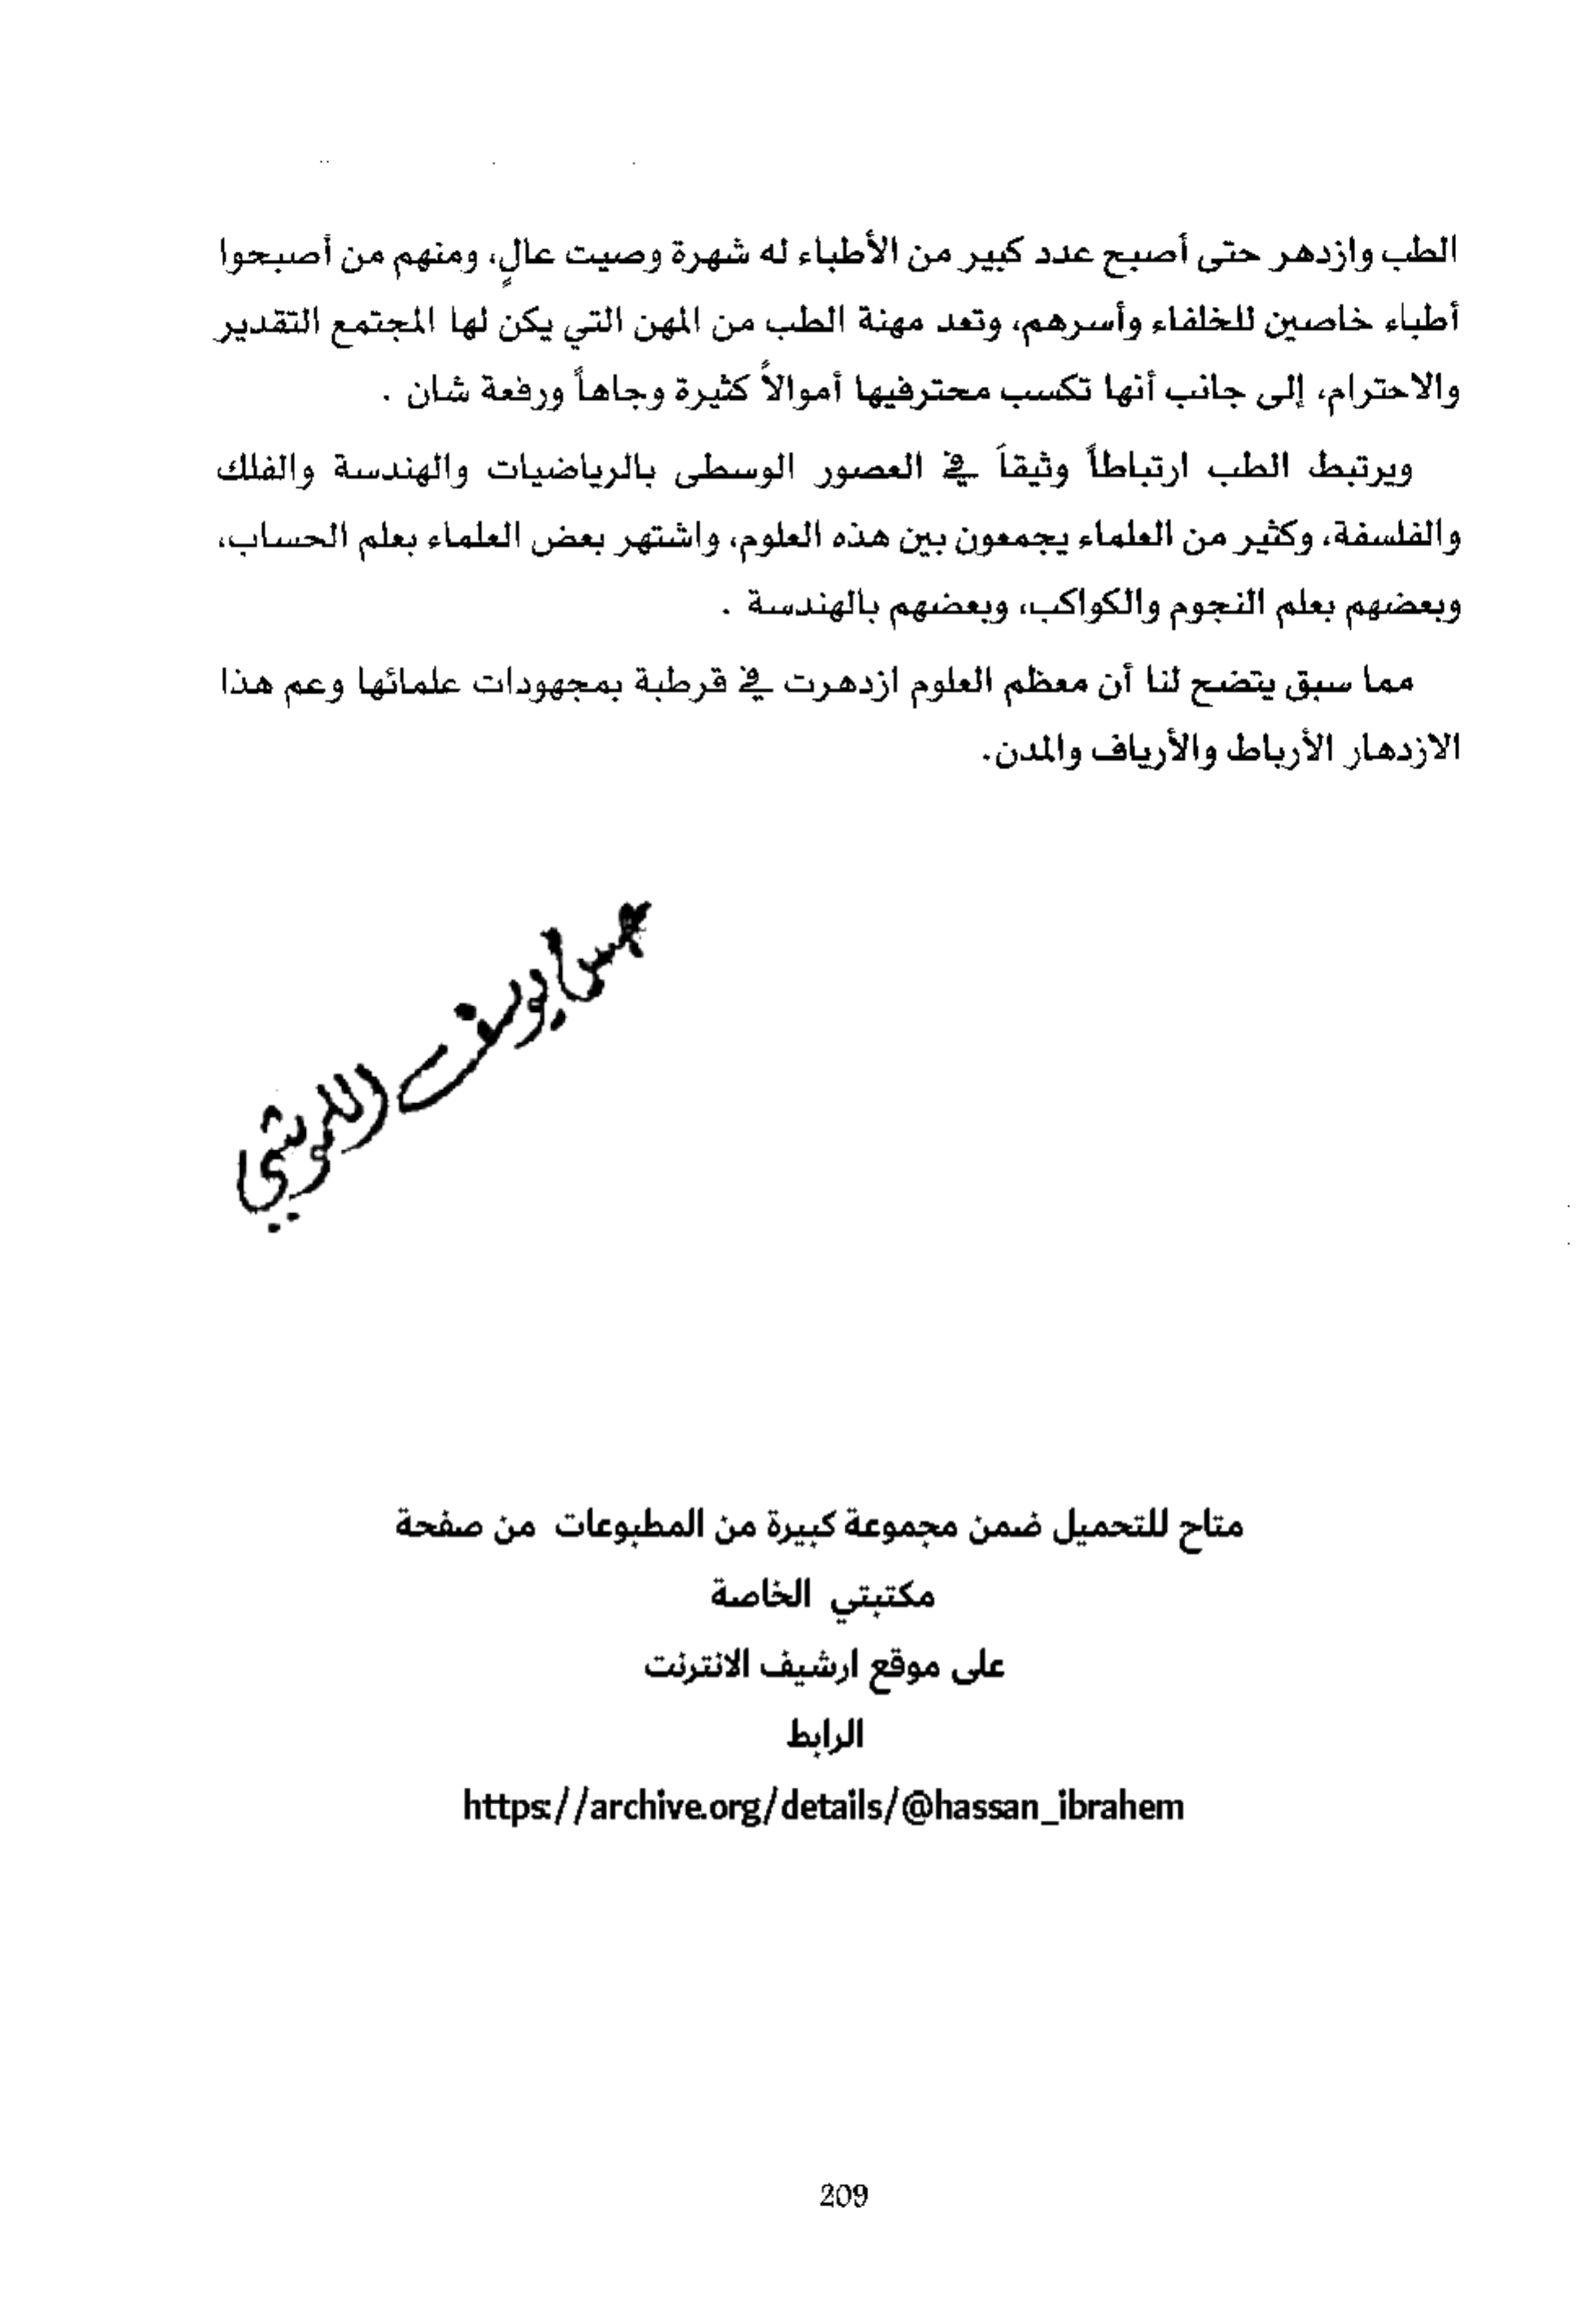 الطب وازدهر حتى أصبح عدد كبير من الأطباء له شهرة وصيت عالٍ، ومنهم من أصبحوا
أطباء خاصين للخلفاء وأسرهم، وتعد مهنة الطب من المهن التي يكن لها المجتمع التقدير
والاحترام، إلى جانب أنها تكسب محترفيها أموالاً كثيرة وجاهاً ورفعة شان .
ويرتبط الطب ارتباطاً وثيقاً في العصور الوسطى بالرياضيات والهندسة والفلك
والفلسفة، وكثير من العلماء يجمعون بين هذه العلوم، واشتهر بعض العلماء بعلم الحساب،
وبعضهم بعلم النجوم والكواكب، وبعضهم بالهندسة .
مما سبق يتضح لنا أن معظم العلوم ازدهرت في قرطبة بمجهودات علمائها وعم هذا
الازدهار الأرباط والأرياف والمدن.
يوسف
متاح للتحميل ضمن مجموعة كبيرة من المطبوعات من صفحة
مكتبتي الخاصة
على موقع ارشيف الانترنت
الرابط
https://archive.org/details/@hassan_ibrahem
209